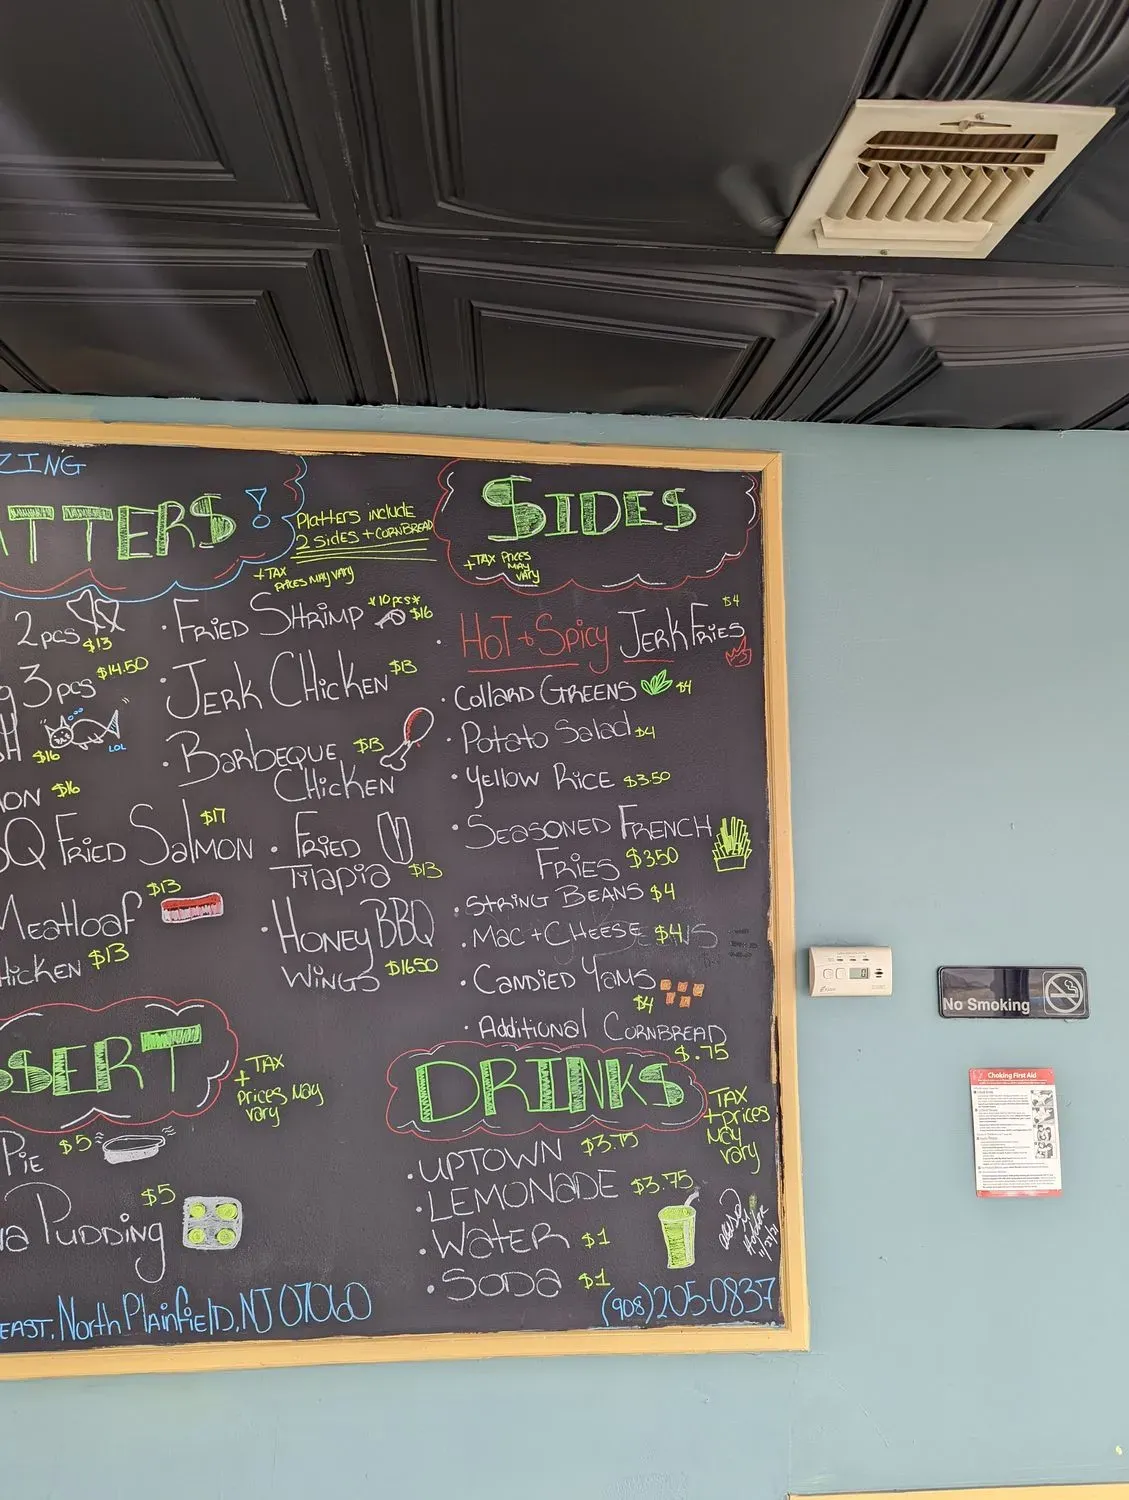 ZING
TTERS!
Platters include
2 sides + CORNBREAD
+ TAX
PRICES MAY VARY
2pcs $13
g 3pcs $14.50
H $16
LOL
ON $16
Q FRIED SALMON $17
MEATLOAF $13
HICKEN $13
• FRIED SHRIMP *10pcs* $16
• JERK CHICKEN $13
• BARBEQUE $13
CHICKEN
• FRIED
TILAPIA $13
• HONEY BBQ
WINGS $16.50
SIDES
+ TAX PRICES
MAY
VARY
• HOT + SPICY JERK FRIES $4
• COLLARD GREENS $4
• POTATO SALAD $4
• YELLOW RICE $3.50
• SEASONED FRENCH
FRIES $3.50
• STRING BEANS $4
• MAC + CHEESE $4
• CANDIED YAMS
$4
• Additional CORNBREAD
$.75
SSERT
TAX
+
Prices May
vary
PIE $5
NA PUDDING $5
DRINKS
TAX
+ prices
MAY
vary
• UPTOWN $3.75
• LEMONADE $3.75
• WATER $1
• SODA $1
EAST, North Plainfield, NJ 07060
(908) 205-0837
No Smoking
Choking First Aid